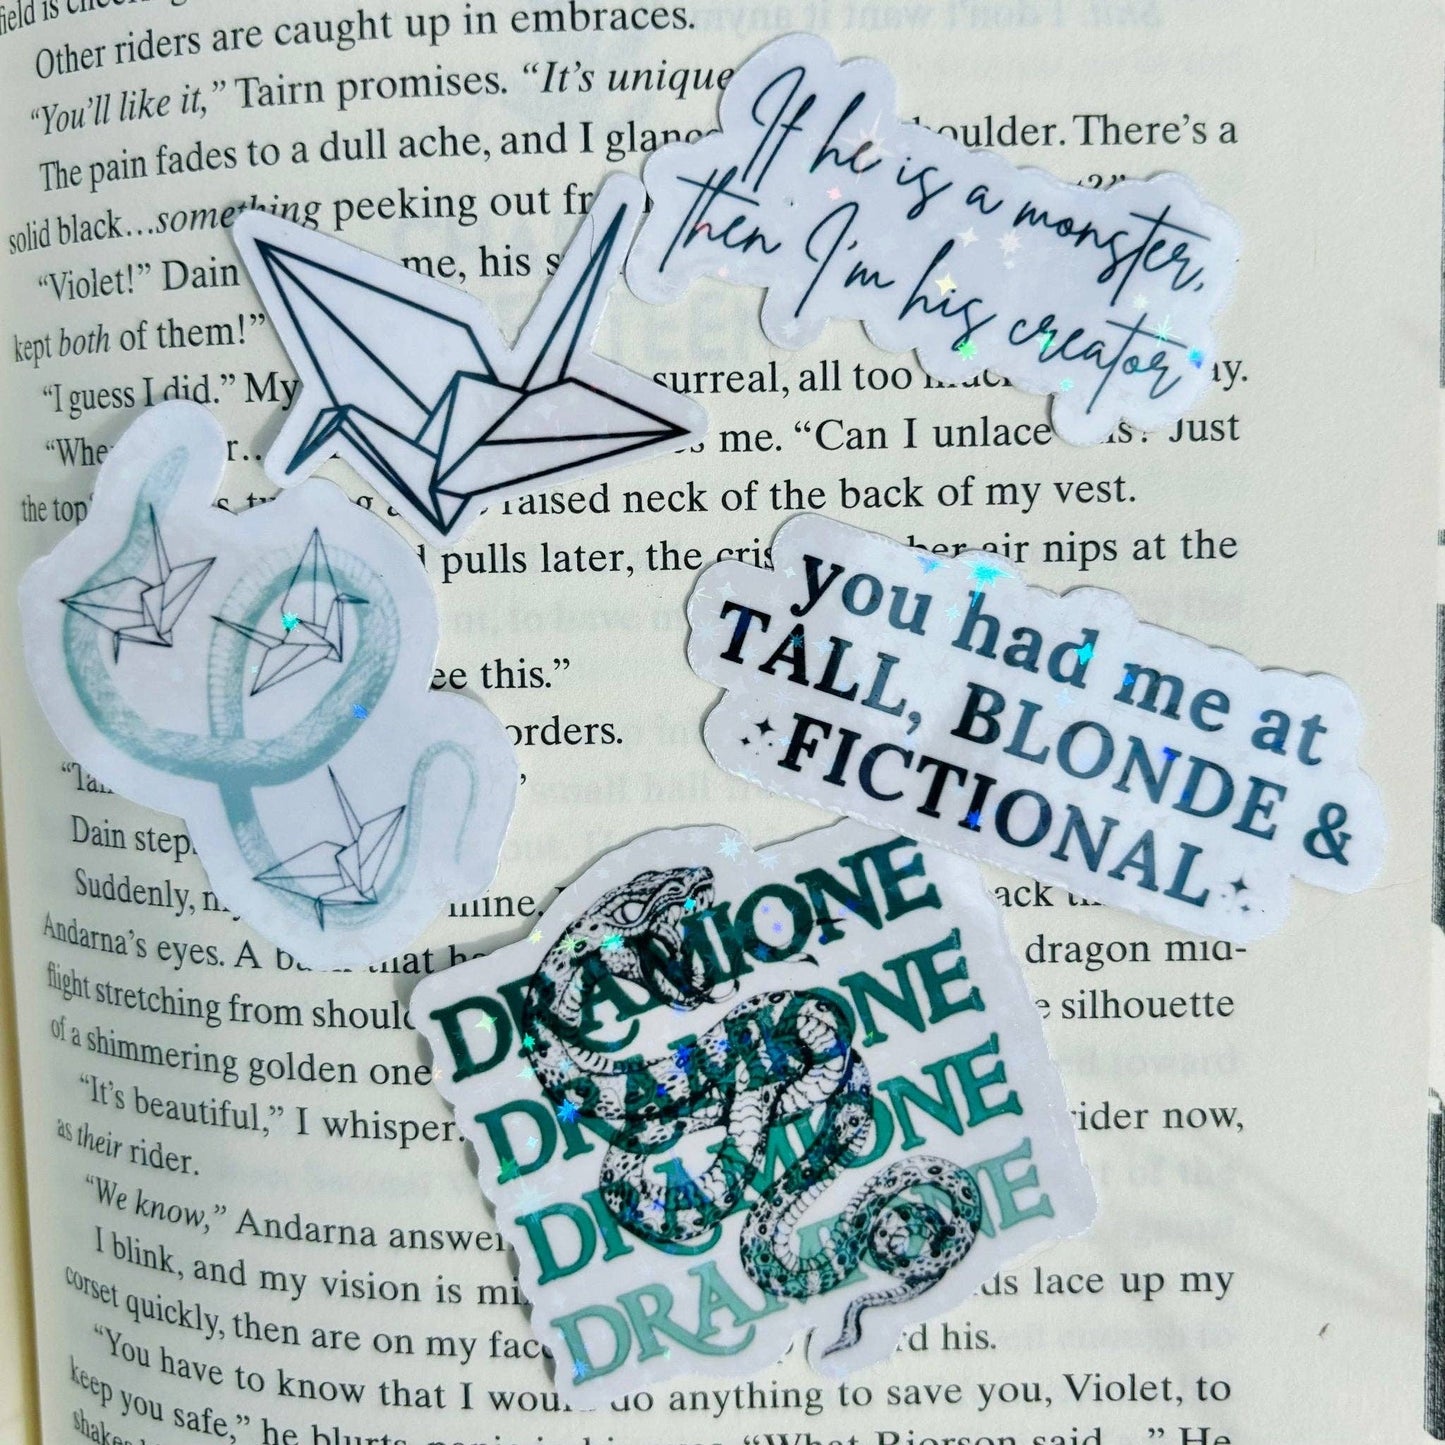 field is
Other riders are caught up in embraces.
“You’ll like it,” Tairn promises. “It’s unique
The pain fades to a dull ache, and I glanc oulder. There’s a
solid black…something peeking out fr
“Violet!” Dain me, his s
kept both of them!”
“I guess I did.” My surreal, all too ay.
“Whe r… me. “Can I unlace this? Just
the top raised neck of the back of my vest.
pulls later, the cris her air nips at the
ee this.”
orders.
“Tai
Dain step
Suddenly, my mine. ack
Andarna’s eyes. A that dragon mid-
flight stretching from should e silhouette
of a shimmering golden one
“It’s beautiful,” I whisper. rider now,
as their rider.
“We know,” Andarna answer
I blink, and my vision is mi ds lace up my
corset quickly, then are on my face rd his.
“You have to know that I would do anything to save you, Violet, to
keep you safe,” he blurts, panic in his “What Riorson said…” He
shakes
If he is a monster,
then I’m his creator
you had me at
TALL, BLONDE &
FICTIONAL
DRAMIONE
DRAMIONE
DRAMIONE
DRAMIONE